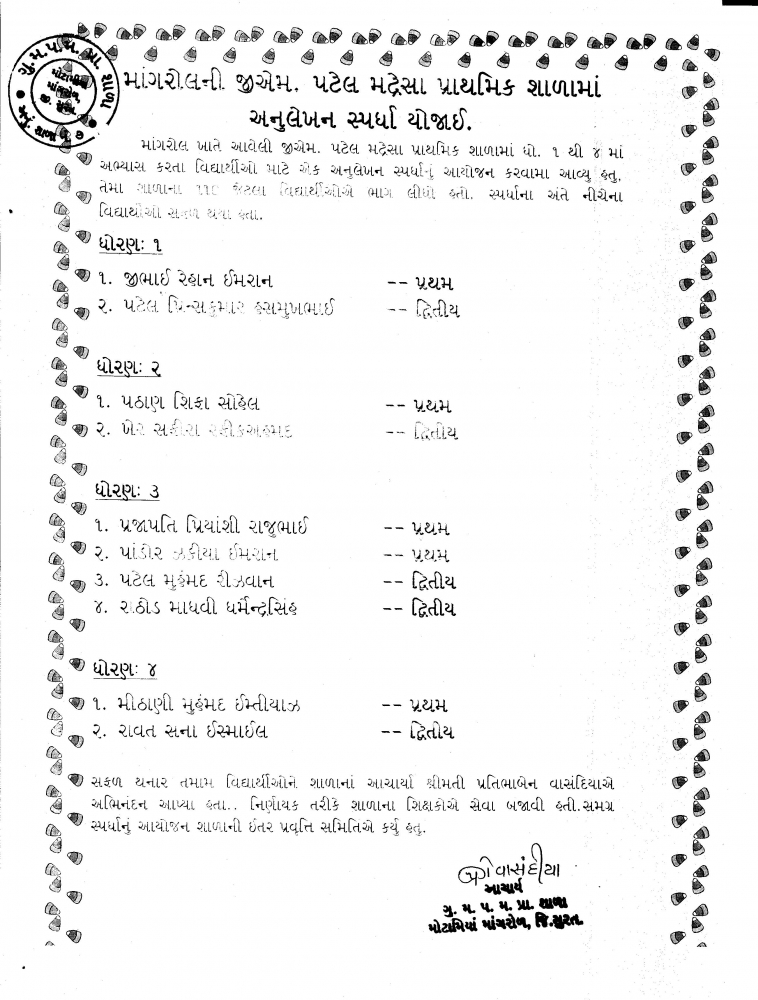 ગુ. મ. પ. મ. પ્રા. શાળા
મોટામીયાં
માંગરોળ,
જી. સુરત
માંગરોલની જીએમ. પટેલ મદ્રેસા પ્રાથમિક શાળામાં
અનુલેખન સ્પર્ધા યોજાઈ.
માંગરોલ ખાતે આવેલી જીએમ. પટેલ મદ્રેસા પ્રાથમિક શાળામાં ધો. ૧ થી ૪ માં
અભ્યાસ કરતા વિદ્યાર્થીઓ માટે એક અનુલેખન સ્પર્ધાનું આયોજન કરવામા આવ્યુ હતુ.
તેમા શાળાના જેટલા વિદ્યાર્થીઓએ ભાગ લીધો હતો. સ્પર્ધાના અંતે નીચેના
વિદ્યાર્થીઓ સફળ થયા હતા.
ધોરણઃ ૧
૧. જીભાઈ રેહાન ઈમરાન -- પ્રથમ
૨. પટેલ પ્રિન્સકુમાર હસમુખભાઈ -- દ્વિતીય
ધોરણઃ ૨
૧. પઠાણ શિફા સોહેલ -- પ્રથમ
૨. ખેર સફીરા રફીકઅહમદ -- દ્વિતીય
ધોરણઃ ૩
૧. પ્રજાપતિ પ્રિયાંશી રાજુભાઈ -- પ્રથમ
૨. પાંડોર ઝકીયા ઈમરાન -- પ્રથમ
૩. પટેલ મુહંમદ રીઝવાન -- દ્વિતીય
૪. રાઠોડ માધવી ધર્મેન્દ્રસિંહ -- દ્વિતીય
ધોરણઃ ૪
૧. મીઠાણી મુહંમદ ઈમ્તીયાઝ -- પ્રથમ
૨. રાવત સના ઈસ્માઈલ -- દ્વિતીય
સફળ થનાર તમામ વિદ્યાર્થીઓને શાળાનાં આચાર્યા શ્રીમતી પ્રતિભાબેન વાસંદિયાએ
અભિનંદન આપ્યા હતા.. નિર્ણાયક તરીકે શાળાના શિક્ષકોએ સેવા બજાવી હતી.સમગ્ર
સ્પર્ધાનું આયોજન શાળાની ઈતર પ્રવૃત્તિ સમિતિએ કર્યુ હતુ.
વાસંદીયા
આચાર્ય
ગુ. મ. પ. મ. પ્રા. શાળા
મોટામિયાં માંગરોળ, જિ.સુરત.